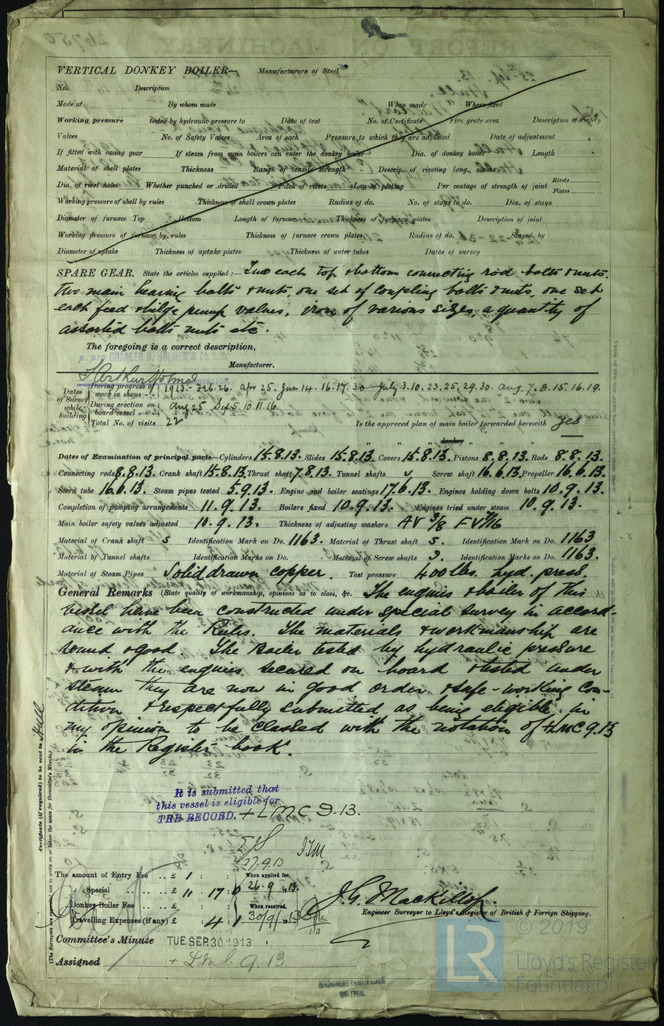 VERTICAL DONKEY BOILER— Manufacturers of Steel
No. Description
Made at By whom made When made Where fixed
Working pressure tested by hydraulic pressure to Date of test No. of Certificate Fire grate area Description of Safety
Valves No. of Safety Valves Area of each Pressure to which they are adjusted Date of adjustment
If fitted with easing gear If steam from main boilers can enter the donkey boiler Dia. of donkey boiler Length
Material of shell plates Thickness Range of tensile strength Descrip. of riveting long. seams
Dia. of rivet holes Whether punched or drilled Pitch of rivets Lap of plating Per centage of strength of joint Rivets Plates
Working pressure of shell by rules Thickness of shell crown plates Radius of do. No. of stays to do. Dia. of stays
Diameter of furnace Top Bottom Length of furnace Thickness of furnace plates Description of joint
Working pressure of furnace by rules Thickness of furnace crown plates Radius of do. Stayed by
Diameter of uptake Thickness of uptake plates Thickness of water tubes Dates of survey
SPARE GEAR. State the articles supplied:— Two each top & bottom connecting rod bolts & nuts,
two main bearing bolts & nuts, one set of coupling bolts & nuts, one set
each feed & bilge pump valves, iron of various sizes, a quantity of
assorted bolts nuts etc.
The foregoing is a correct description,
Manufacturer.
Dates of Survey while building
During progress of work in shops - - 1913:- Feb. 26. Apr 25. Jun 14. 16. 17. 30 July 3. 10. 23. 25. 29. 30. Aug. 7. 8. 15. 16. 19.
During erection on board vessel - - - Aug 25 Sep 5. 10. 11. 16.
Total No. of visits 22 Is the approved plan of main boiler forwarded herewith yes
" " " donkey " " "
Dates of Examination of principal parts—Cylinders 15.8.13. Slides 15.8.13. Covers 15.8.13. Pistons 8.8.13. Rods 8.8.13.
Connecting rods 8.8.13. Crank shaft 15.8.13. Thrust shaft 7.8.13. Tunnel shafts Screw shaft 16.6.13. Propeller 16.6.13.
Stern tube 16.6.13. Steam pipes tested 5.9.13. Engine and boiler seatings 17.6.13. Engines holding down bolts 10.9.13.
Completion of pumping arrangements 11.9.13. Boilers fixed 10.9.13. Engines tried under steam 10.9.13.
Main boiler safety valves adjusted 10.9.13. Thickness of adjusting washers AV 3/8 FV 7/16
Material of Crank shaft S Identification Mark on Do. 1163. Material of Thrust shaft S. Identification Mark on Do. 1163
Material of Tunnel shafts Identification Marks on Do. Material of Screw shafts Identification Marks on Do. 1163.
Material of Steam Pipes Solid drawn copper. Test pressure 400 lbs. hyd. press.
General Remarks (State quality of workmanship, opinions as to class, &c. The engines & boiler of this
vessel have been constructed under special survey in accord-
ance with the Rules. The materials & workmanship are
sound & good. The Boiler tested by hydraulic pressure
& with the engines secured on board & tested under
steam they are now in good order & safe working con-
dition & respectfully submitted as being eligible in
my opinion to be classed with the notation of + LMC 9.13
in the Register book.
Certificate (if required) to be sent to Hull
It is submitted that
this vessel is eligible for
THE RECORD. + LMC 9.13.
27.9.13
The amount of Entry Fee .. £ 1 : When applied for,
Special .. .. £ 11 . 17 . 0 26.9.13.
Donkey Boiler Fee .. .. £ When received,
Travelling Expenses (if any) £ 4 . 1 30/9/13
J. G. Mackillop
Engineer Surveyor to Lloyd's Register of British & Foreign Shipping.
Committee's Minute TUE. SEP. 30. 1913
Assigned + LMC 9.13
© 2019
LR
Lloyd's Register
Foundation